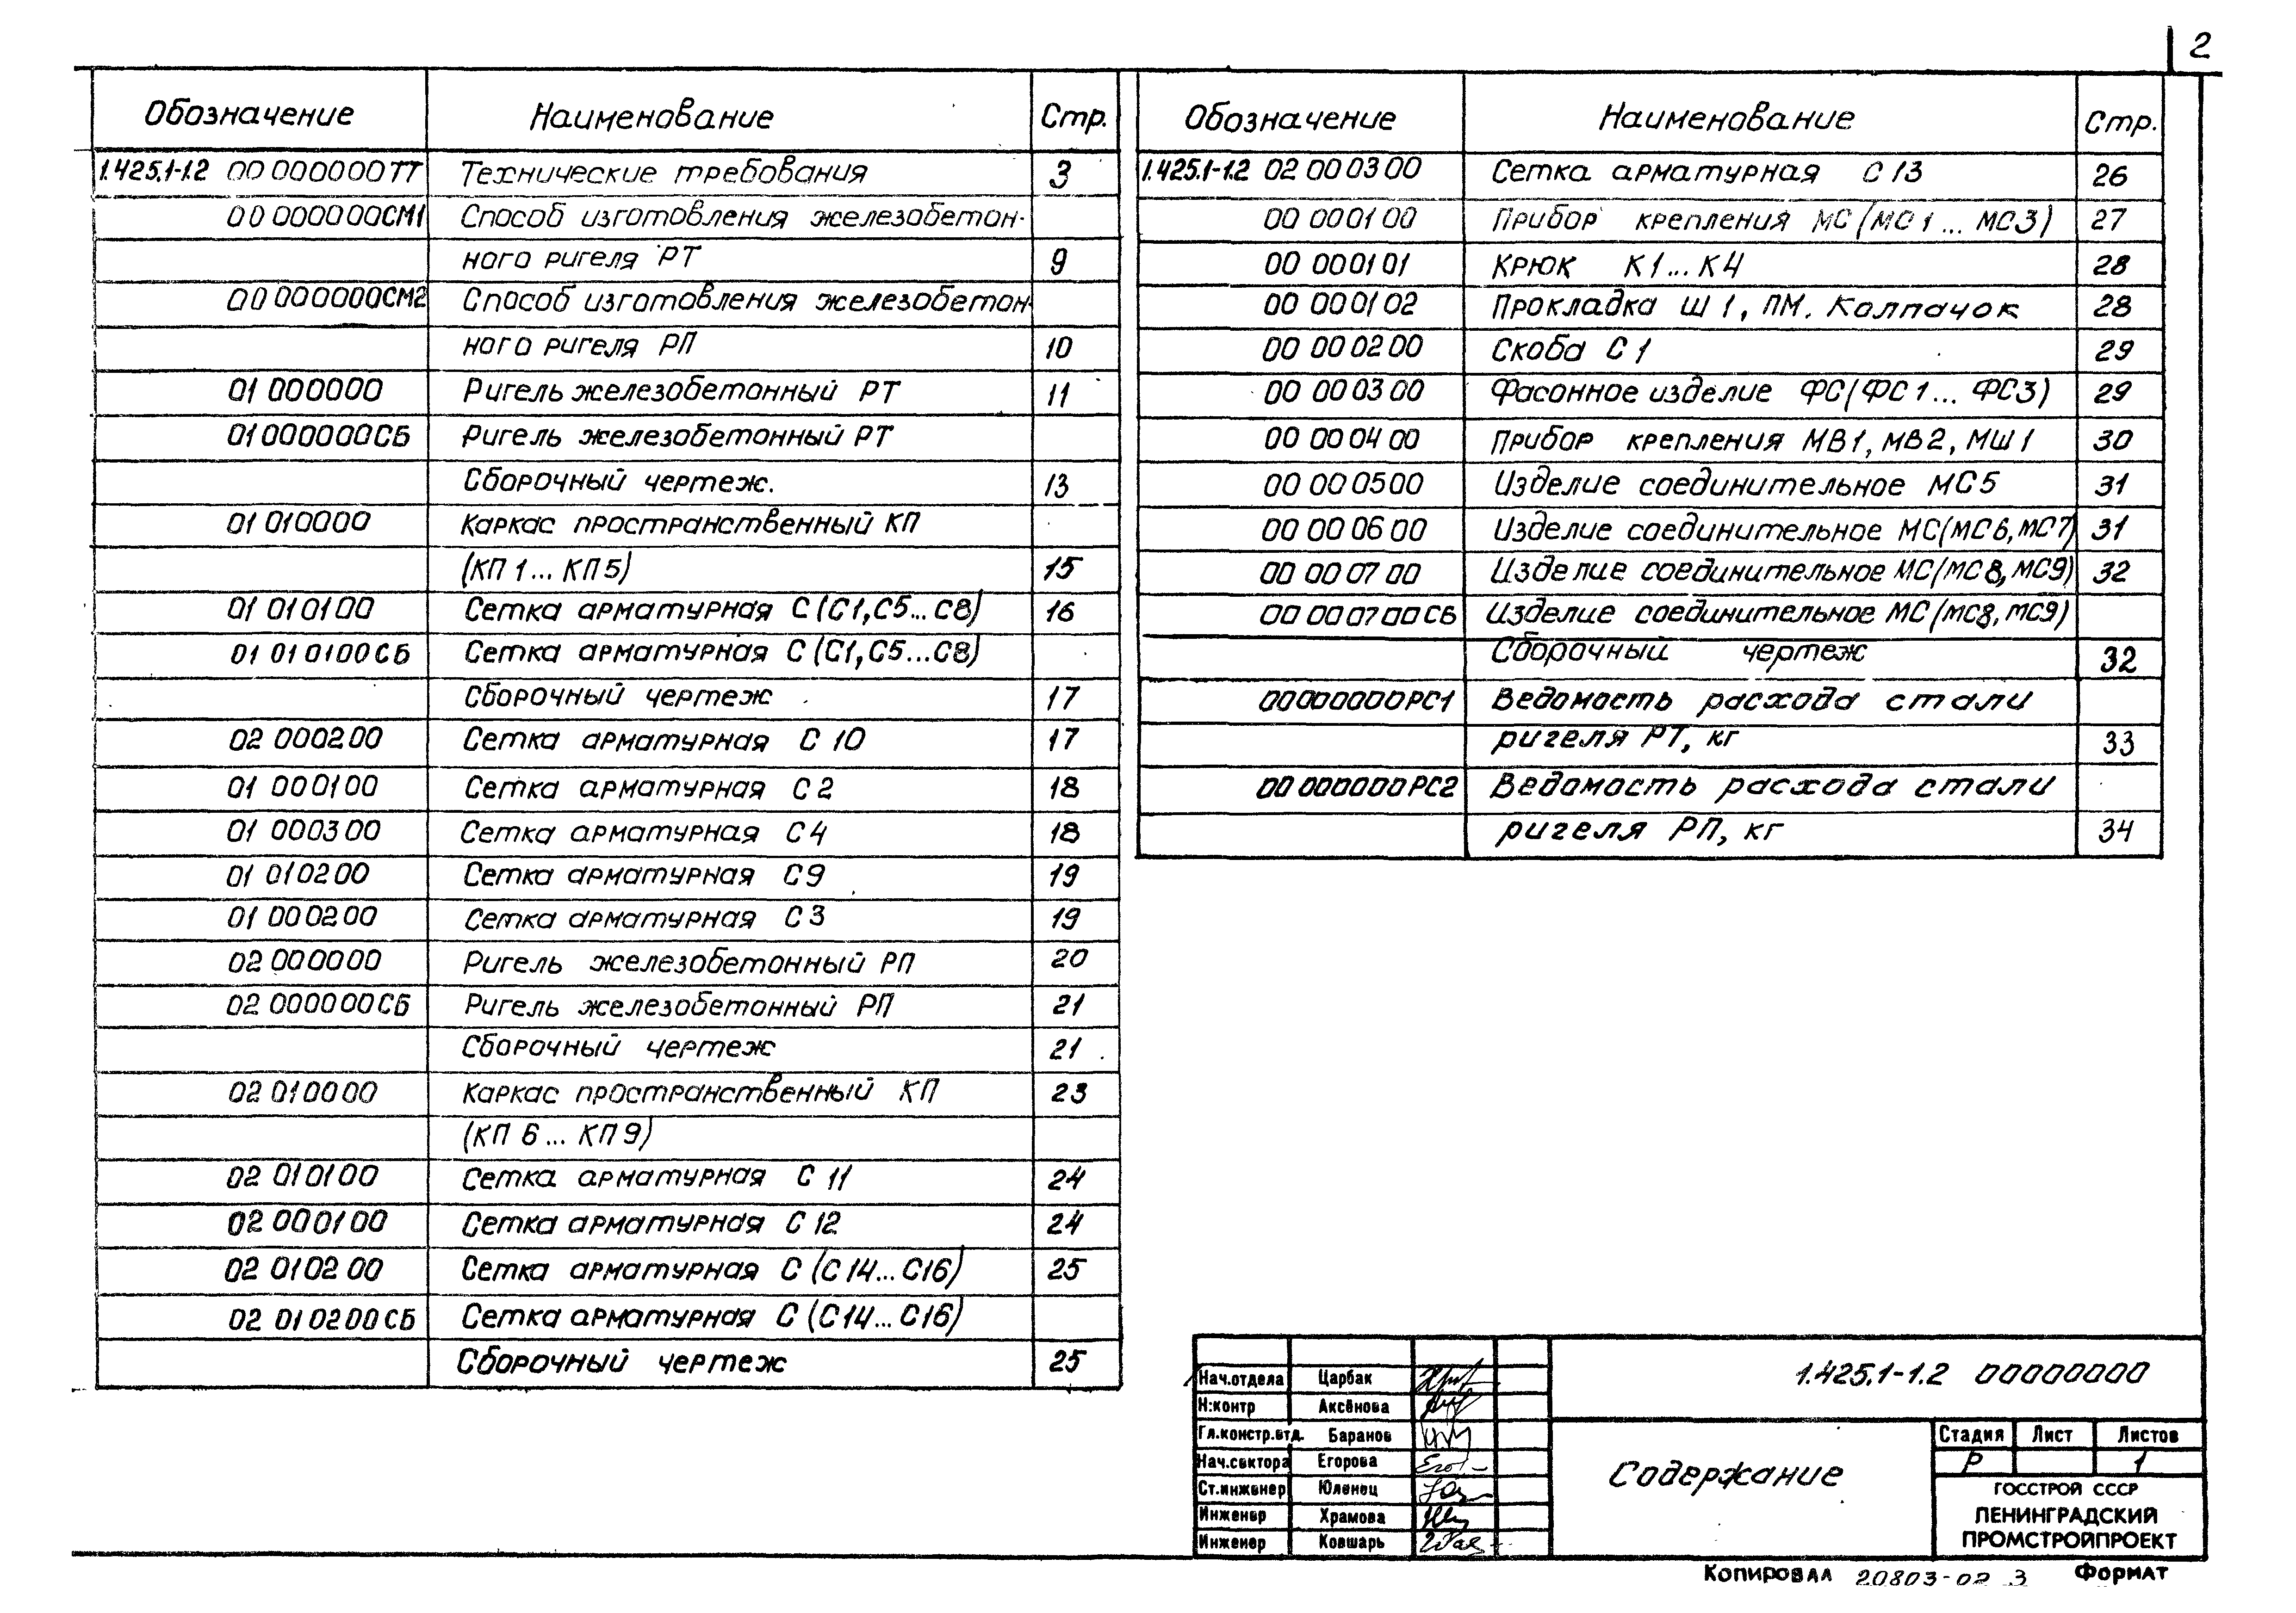 2
Обозначение Наименование Стр.
1.425.1-1.2 00 000000ТТ Технические требования 3
00 000000СМ1 Способ изготовления железобетон-
ного ригеля РТ 9
00 000000СМ2 Способ изготовления железобетон-
ного ригеля РП 10
01 000000 Ригель железобетонный РТ 11
01 000000СБ Ригель железобетонный РТ
Сборочный чертеж. 13
01 010000 Каркас пространственный КП
(КП 1... КП 5) 15
01 010100 Сетка арматурная С (С1, С5... С8) 16
01 010100СБ Сетка арматурная С (С1, С5...С8)
Сборочный чертеж 17
02 000200 Сетка арматурная С 10 17
01 000100 Сетка арматурная С 2 18
01 000300 Сетка арматурная С 4 18
01 010200 Сетка арматурная С9 19
01 000200 Сетка арматурная С 3 19
02 000000 Ригель железобетонный РП 20
02 000000СБ Ригель железобетонный РП 21
Сборочный чертеж 21
02 010000 Каркас пространственный КП 23
(КП 6... КП 9)
02 010100 Сетка арматурная С 11 24
02 000100 Сетка арматурная С 12 24
02 010200 Сетка арматурная С (С 14... С16) 25
02 010200СБ Сетка арматурная С (С14... С16)
Сборочный чертеж 25
Обозначение Наименование Стр.
1.425.1-1.2 02 000300 Сетка арматурная С 13 26
00 000100 Прибор крепления МС (МС 1... МС3) 27
00 000101 Крюк К1... К4 28
00 000102 Прокладка Ш 1, ПМ. Колпачок 28
00 000200 Скоба С 1 29
00 000300 Фасонное изделие ФС (ФС 1... ФС3) 29
00 000400 Прибор крепления МВ1, МВ2, МШ 1 30
00 000500 Изделие соединительное МС5 31
00 000600 Изделие соединительное МС(МС6, МС7) 31
00 000700 Изделие соединительное МС (МС 8, МС9) 32
00 000700СБ Изделие соединительное МС (МС8, МС9)
Сборочный чертеж 32
00000000РС1 Ведомость расхода стали
ригеля РТ, кг 33
00 000000РС2 Ведомость расхода стали
ригеля РП, кг 34
Нач.отдела Царбак
Н.контр Аксёнова
Гл.констр.отд. Баранов
Нач.сектора Егорова
Ст.инженер Юленец
Инженер Храмова
Инженер Ковшарь
1.425.1-1.2 00000000
Содержание
Стадия Лист Листов
Р 1
ГОССТРОЙ СССР
ЛЕНИНГРАДСКИЙ
ПРОМСТРОЙПРОЕКТ
Копировал 20803-02 3 Формат